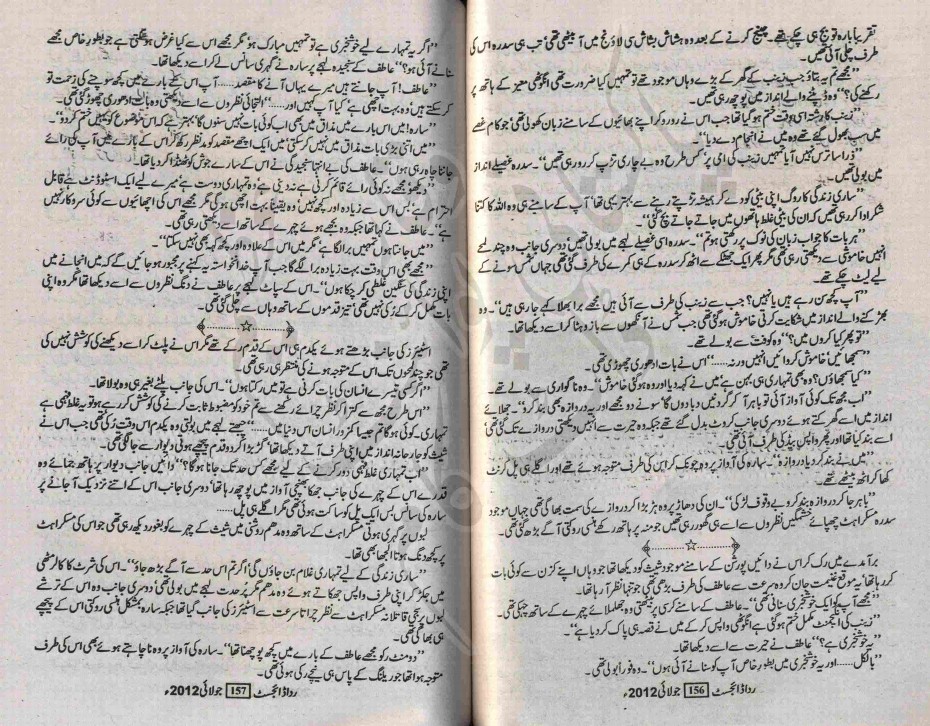 تقریباً بارہ تو بج ہی چکے تھے۔ چینج کرنے کے بعد وہ ہشاش بشاش سی لاؤنج میں آ بیٹھی تھی، تب ہی سدرہ اس کی
طرف چلی آئی تھیں۔
”مجھے تم یہ بتاؤ جب زینب کے گھر کے بڑے وہاں موجود تھے تو تمہیں کیا ضرورت تھی انگوٹھی معیز کے ہاتھ پر
رکھنے کی؟“ وہ ڈپٹنے والے انداز میں پوچھ رہی تھیں۔
زینب کا رشتہ اسی وقت ختم ہو گیا تھا جب اس نے رو رو کر اپنے بھائیوں کے سامنے زبان کھولی تھی، جو کام غصے
میں سب بھول گئے تھے وہ میں نے انجام دے دیا“۔
”ذرا سا ترس نہیں آیا تمہیں زینب کی امی پر، کس طرح وہ بے چاری تڑپ کر رو رہی تھیں“۔ سدرہ غصیلے انداز
میں بولی تھیں۔
”ساری زندگی کا روگ اپنی بیٹی کو دے کر ہمیشہ تڑپتے رہنے سے بہتر یہی تھا، آپ کے سامنے ہی وہ اللہ کا کتنا
شکر ادا کر رہی تھیں کہ ان کی بیٹی غلط ہاتھوں میں جاتے جاتے بچ گئی“۔
”ہر بات کا جواب زبان کی نوک پر رکھتی ہو تم“۔ سدرہ اسی غصیلے لہجے میں بولی تھیں، دوسری جانب وہ چند لمحے
انہیں خاموشی سے دیکھتی رہی تھی مگر پھر ایک جھٹکے سے اٹھ کر سدرہ کے ہی کمرے کی طرف گئی تھی جہاں شمس سونے کے
لیے لیٹ چکے تھے۔
”آپ کچھ سن رہے ہیں یا نہیں؟ جب سے زینب کی طرف سے آئی ہیں مجھے برا بھلا کہے جا رہی ہیں“۔ وہ
بھڑکنے والے انداز میں شکایت کرتی خاموش ہو گئی تھی جب شمس نے آنکھوں سے بازو ہٹا کر اسے دیکھا تھا۔
”تو پھر کیا کروں میں؟“ وہ کوفت سے بولے تھے۔
”سمجھائیں، خاموش کروائیں انہیں ورنہ......“ اس نے بات ادھوری چھوڑی تھی۔
”کیا سمجھاؤں؟ وہ بھی تمہاری ہی بہن ہے، میں نے کہہ دیا اور وہ ہو گئی خاموش“۔ وہ ناگواری سے بولے تھے۔
”اب مجھ تک کوئی آواز آئی تو باہر آ کر گردنیں دبا دوں گا، سونے دو مجھے اور یہ دروازہ بھی بند کرو“۔ جھلائے
انداز میں اسے گھرکتے ہوئے دوسری جانب کروٹ بدل گئے تھے جبکہ وہ حیرت سے انہیں دیکھتی دروازے تک گئی تھی،
اسے بند کیا تھا اور پھر واپس بیڈ کی طرف آئی تھی۔
”میں نے بند کر دیا دروازہ“۔ سارہ کی آواز پر وہ چونک کر اس کی طرف متوجہ ہوئے تھے اور اگلے ہی پل کرنٹ
کھا کر اٹھ بیٹھے تھے۔
”باہر جا کر دروازہ بند کرو بے وقوف لڑکی“۔ ان کی دھاڑ پر وہ ہڑبڑا کر دروازے کی سمت بھاگی تھی جہاں موجود
سدرہ مسکراہٹ چھپائے خشمگیں نظروں سے اسے ہی گھور رہی تھیں، جو منہ پر ہاتھ رکھے ہنسی روکتی آگے بڑھ گئی تھی۔
☆
برآمدے میں رک کر اس نے دائیں پورشن کے سامنے موجود شیث کو دیکھا تھا جو وہاں اپنے کزن سے کوئی بات
کر رہا تھا۔ یہ موقع غنیمت جان کر وہ سرعت سے عاطف کی طرف بڑھی تھی جو تنہا نظر آ رہا تھا۔
”مجھے آپ کو ایک خوشخبری سنانی تھی“۔ عاطف کے سامنے کرسی پر بیٹھتی وہ جھلملاتے چہرے کے ساتھ چہکی تھی۔
”زینب کی انگیجمنٹ مکمل ختم ہو گئی ہے، انگوٹھی واپس کر کے میں نے قصہ ہی پاک کر دیا ہے“۔
”یہ خوشخبری ہے؟“ عاطف نے حیرت سے اسے دیکھا تھا۔
”بالکل..... اور یہ خوشخبری میں بطور خاص آپ کو سنانے آئی ہوں“۔ وہ فوراً بولی تھی۔
ردا ڈائجسٹ 156 جولائی 2012ء
”اگر یہ تمہارے لیے خوشخبری ہے تو تمہیں مبارک ہو، مگر مجھے اس سے کیا غرض ہو سکتی ہے جو بطور خاص مجھے
سنانے آئی ہو؟“ عاطف کے سنجیدہ لہجے پر سارہ نے گہری سانس لے کر اسے دیکھا تھا۔
”عاطف! آپ جانتے ہیں میرے یہاں آنے کا مقصد...... آپ اس کے بارے میں کچھ سوچنے کی زحمت تو
کر سکتے ہیں، وہ بہت اچھی ہے، کیا آپ کہیں اور......“ التجائی نظروں سے اسے دیکھتی وہ بات ادھوری چھوڑ گئی تھی۔
”سارہ! میں اس بارے میں مذاق میں بھی اب کوئی بات نہیں سنوں گا، بہتر ہے کہ اس موضوع کو یہیں ختم کر دو“۔
”میں اتنی بڑی بات مذاق میں نہیں کر سکتی، میں ایک اچھے مقصد کو مد نظر رکھ کر اس کے بارے میں آپ کی رائے
جاننا چاہ رہی ہوں“۔ عاطف کی بے انتہا سنجیدگی نے اس کے سارے جوش کو ٹھنڈا کر دیا تھا۔
”دیکھو! مجھے نہ کوئی رائے قائم کرنی ہے نہ دینی ہے، وہ تمہاری دوست ہے، میرے لیے ایک اسٹوڈنٹ ہے قابل
احترام ہے، بس اس سے زیادہ اور کچھ نہیں، وہ یقیناً بہت اچھی ہو گی مگر مجھے اس کی اچھائیوں سے کوئی سروکار نہیں
ہے“۔ عاطف نے کہا تھا جبکہ وہ بجھے ہوئے چہرے کے ساتھ اسے دیکھتی رہی تھی۔
”میں جانتا ہوں تمہیں برا لگا ہے، مگر میں اس کے علاوہ اور کچھ کہہ بھی نہیں سکتا“۔
”مجھے بھی اس وقت بہت زیادہ برا لگے گا جب آپ خدانخواستہ یہ کہنے پر مجبور ہو جائیں گے کہ میں انجانے میں
اپنی زندگی کی سنگین غلطی کر چکا ہوں“۔ اس کے سپاٹ لہجے پر عاطف نے دنگ نظروں سے اسے دیکھا تھا مگر وہ اپنی
بات مکمل کر کے رکی نہیں تھی، تیز قدموں کے ساتھ وہاں سے چلی گئی تھی۔
☆
اسٹیئرز کی جانب بڑھتے ہوئے یکدم ہی اس کے قدم رکے تھے مگر اس نے پلٹ کر اسے دیکھنے کی کوشش نہیں کی
تھی جو چند لمحوں تک اس کے متوجہ ہونے کی منتظر ہی رہی تھی۔
”اگر کسی تیسرے انسان کی بات کرنی ہے تو میں رکتا ہوں“۔ اس کی جانب پلٹے بغیر ہی وہ بولا تھا۔
”اس طرح مجھ سے کترا کر نظر چرائے رکھنے سے تم خود کو مضبوط ثابت کرنے کی کوشش کر رہے ہو تو یہ غلط فہمی ہے
تمہاری۔ کوئی ہوگا تم جیسا کمزور انسان اس دنیا میں......“ چبھتے لہجے میں بولتی وہ یکدم اس وقت رکی تھی جب اس نے
شیث کو جارحانہ انداز میں اپنی طرف آتے دیکھا تھا، گڑبڑا کر دو قدم پیچھے ہوتی دیوار سے جا لگی تھی۔
”اب تمہاری غلط فہمی دور کرنے کے لیے مجھے کس حد تک جانا ہوگا؟“ دائیں جانب دیوار پر ہاتھ جمائے وہ
قدرے اس کے چہرے کی جانب جھکا بھنچی آواز میں پوچھ رہا تھا، دوسری جانب اس کے اتنے نزدیک آ جانے پر
سارہ کی سانس بس ایک پل کو ساکت ہوئی تھی مگر اگلے ہی پل......
لبوں پر گہری ہوتی مسکراہٹ کے ساتھ وہ مدھم روشنی میں شیث کے چہرے کو بغور دیکھ رہی تھی جو اس کی مسکراہٹ
پر کچھ دنگ ہوتا الجھا بھی تھا۔
”ساری زندگی کے لیے تمہاری غلام بن جاؤں گی، اگر تم اس حد سے آگے بڑھ جاؤ“۔ اس کی شرٹ کا کالر مٹھی
میں جکڑ کر اپنی طرف واپس کھینچاتے ہوئے وہ مدھم مگر پر حدت لہجے میں بولی تھی، دوسری جانب وہ اس کے ترشے
لبوں پر سجی قاتلانہ مسکراہٹ سے نظر چراتا سرعت سے اسٹیئرز کی جانب گیا تھا جبکہ سارہ بمشکل ہنسی روکتی اس کے پیچھے
ہی بھاگی تھی۔
”دو منٹ رکو، مجھے عاطف کے بارے میں کچھ پوچھنا تھا“۔ سارہ کی آواز پر وہ نہ چاہتے ہوئے بھی اس کی طرف
متوجہ ہوا تھا جو ریلنگ کے پاس ہی نیچے رکی ہوئی تھی۔
ردا ڈائجسٹ 157 جولائی 2012ء